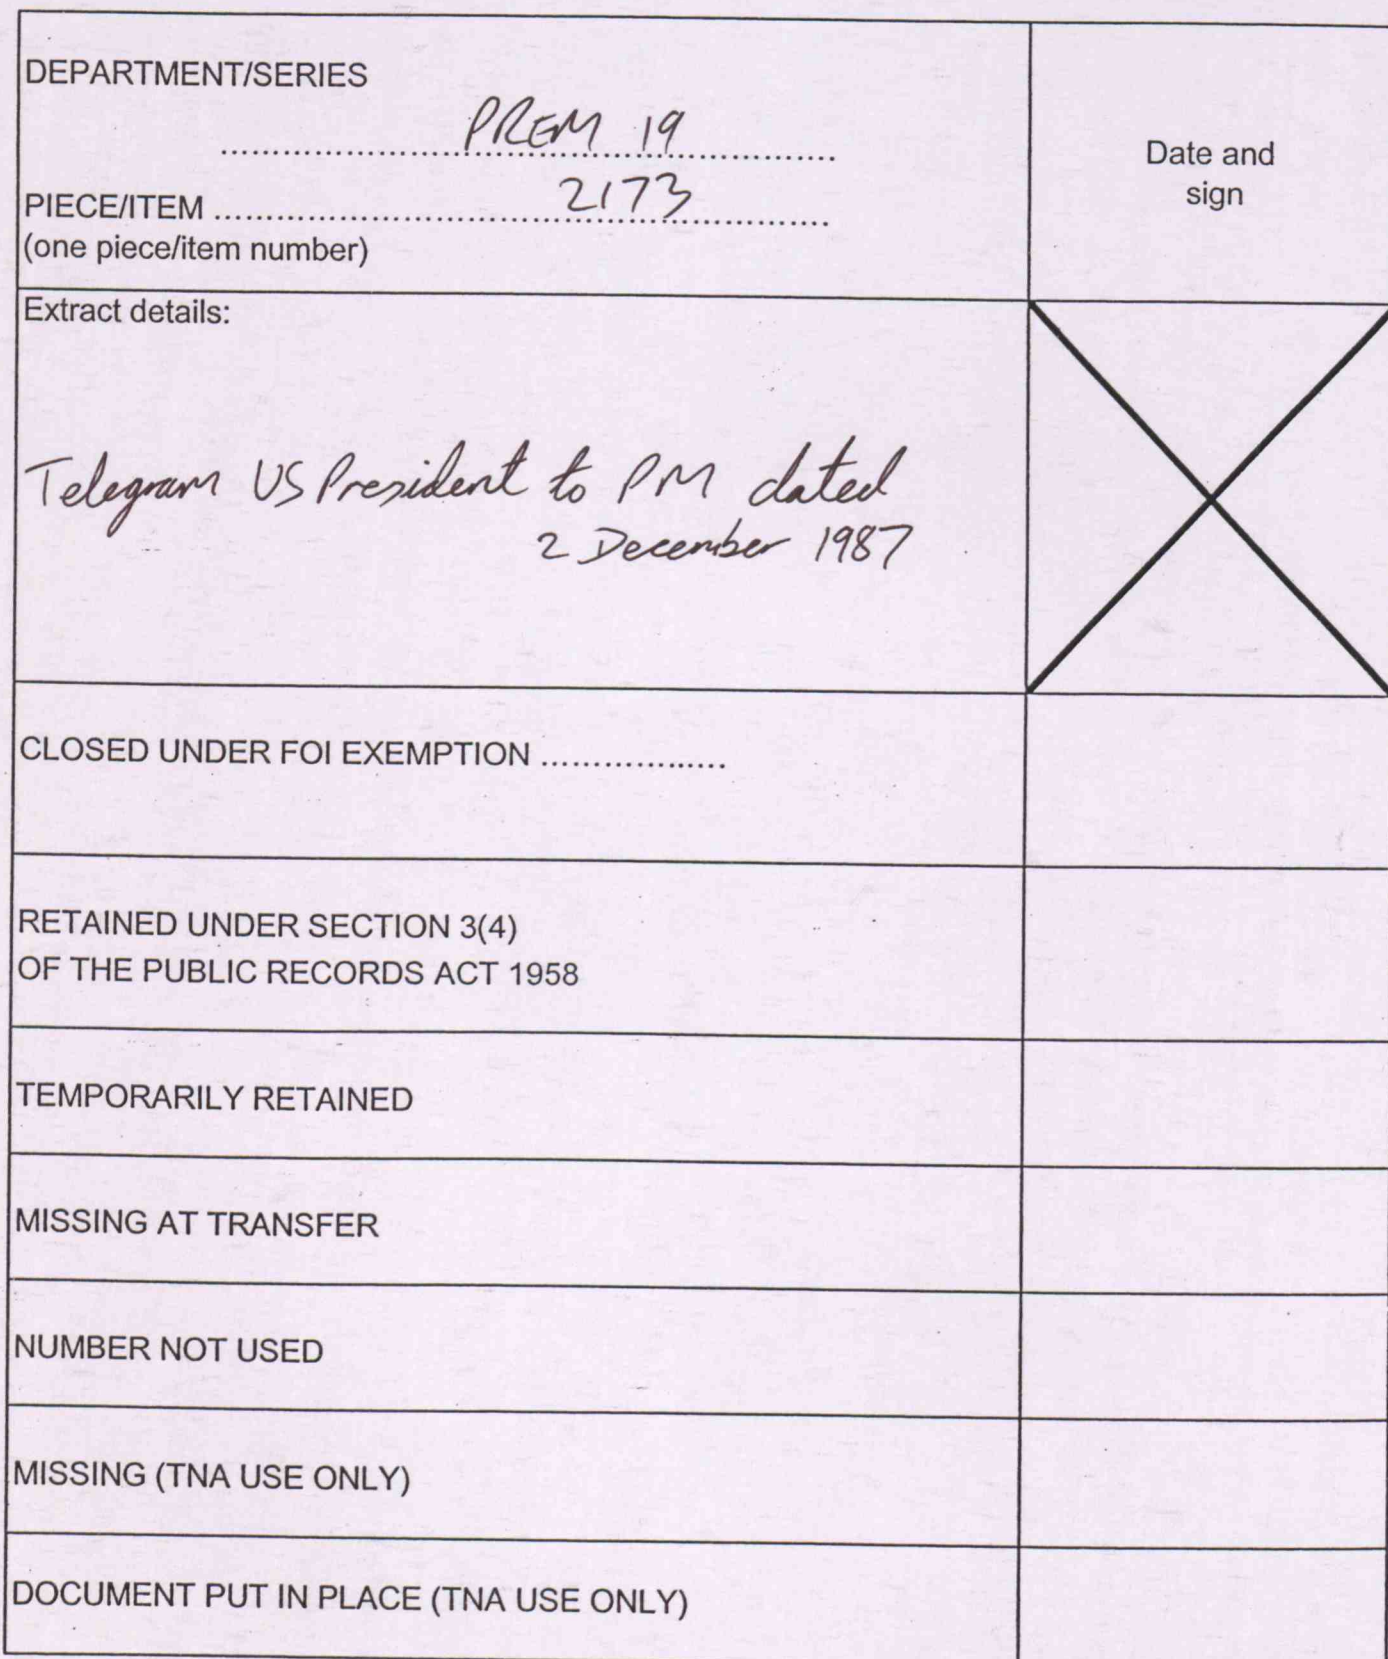 DEPARTMENT/SERIES
PREM 19
Date and
sign
PIECE/ITEM ........................................................ 2173
(one piece/item number)
Extract details:
Telegram US President to PM dated
2 December 1987
CLOSED UNDER FOI EXEMPTION ....................
RETAINED UNDER SECTION 3(4)
OF THE PUBLIC RECORDS ACT 1958
TEMPORARILY RETAINED
MISSING AT TRANSFER
NUMBER NOT USED
MISSING (TNA USE ONLY)
DOCUMENT PUT IN PLACE (TNA USE ONLY)